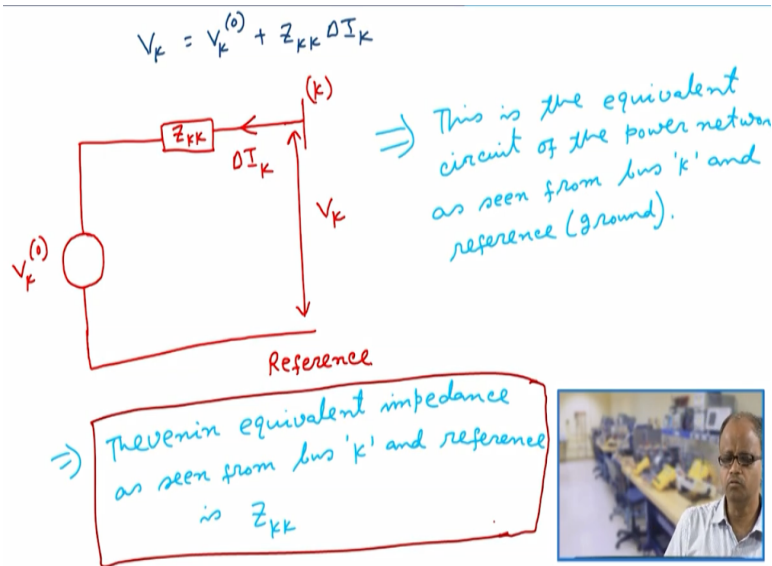 V_K = V_K^(0) + Z_KK ΔI_K
(K)
Z_KK
ΔI_K
V_K
V_K^(0)
Reference
⇒ This is the equivalent
circuit of the power networ
as seen from bus 'K' and
reference (ground).
⇒ Thevenin equivalent impedance
as seen from bus 'K' and reference
is Z_KK